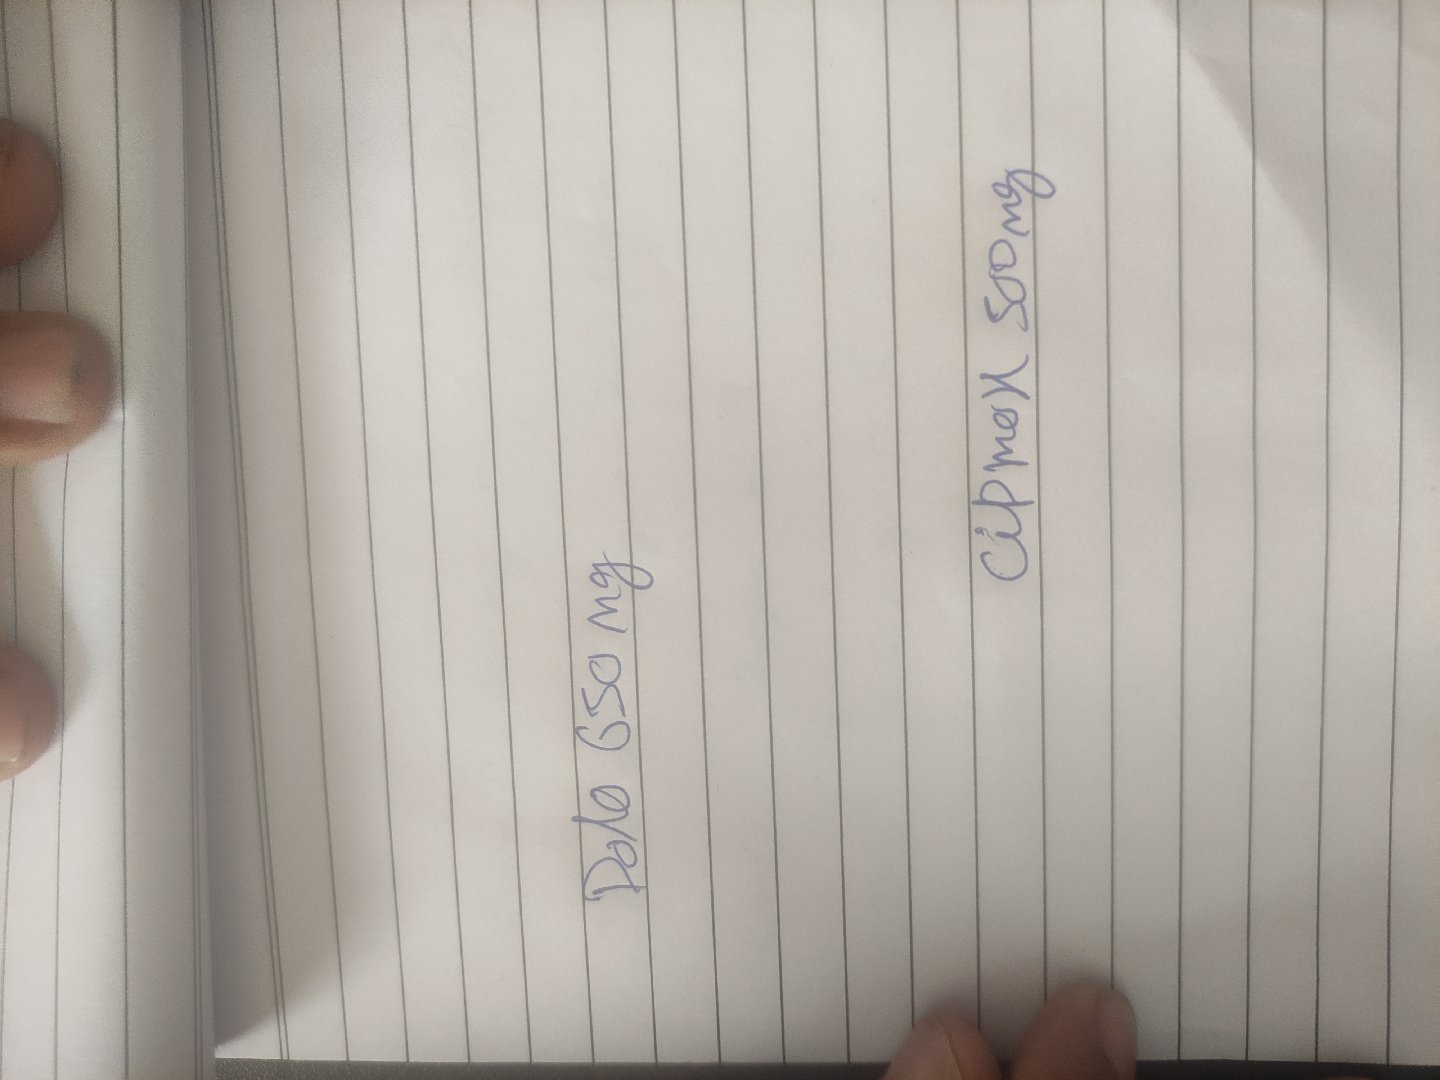 Dolo 650 mg
Cipmox 500mg